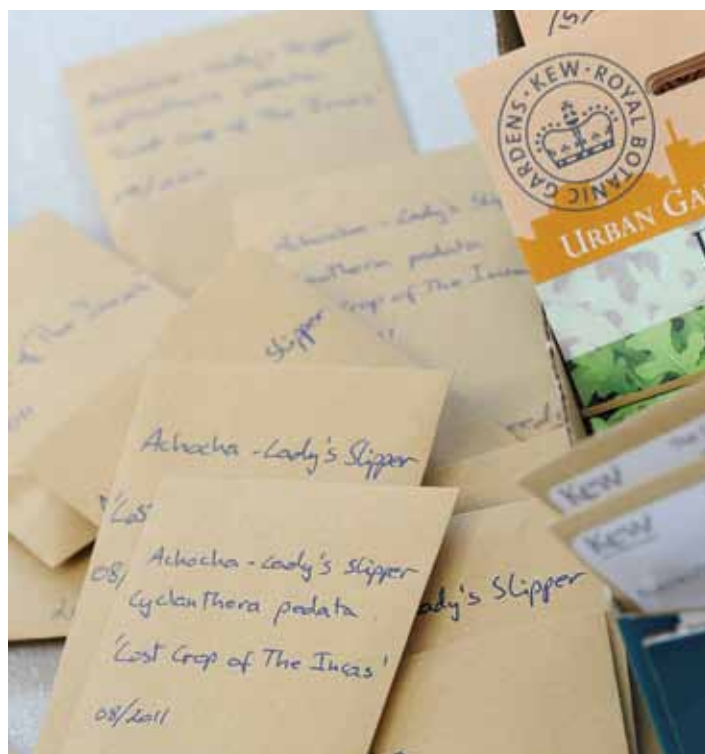 Achocha - Lady's Slipper
'Lost Crop of The Incas'
Achocha - Lady's Slip
anthera pedata
Crop of The Incas
The Incas
Slipper
Achocha - Lady's Slipper
'Los
08/
Achocha - Lady's Slipper
Cyclanthera pedata
'Lost Crop of The Incas'
08/2011
ady's Slipper
KEW · ROYAL BOTANIC GARDENS
URBAN GA
KEW
KEW